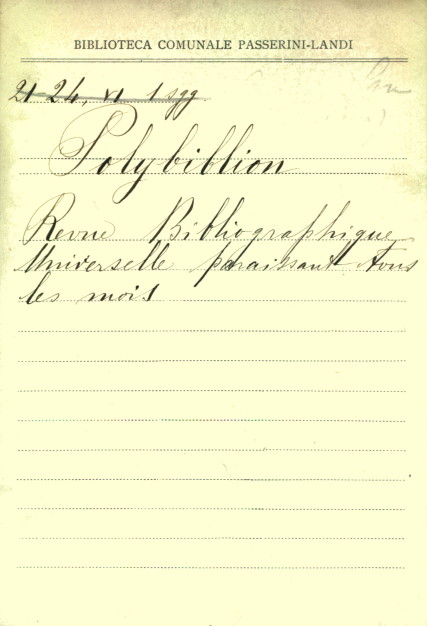 BIBLIOTECA COMUNALE PASSERINI-LANDI
21-24, VI 1 sgg
Polybiblion
Revue Bibliographique
Universelle paraissant tous
les mois